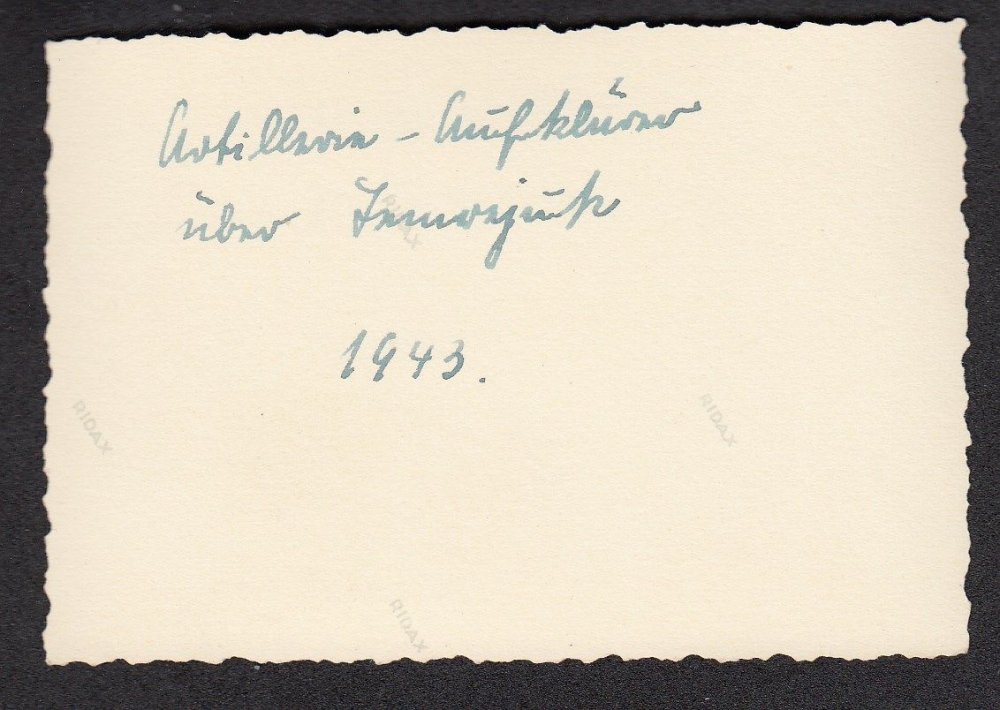 Artillerie - Aufklärer
über Temrejuk
1943.
RIDAX
RIDAX
RIDAX
RIDAX